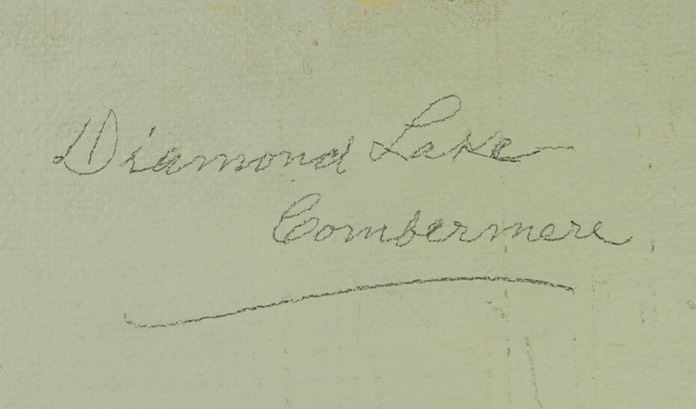 Diamond Lake
Combermere.